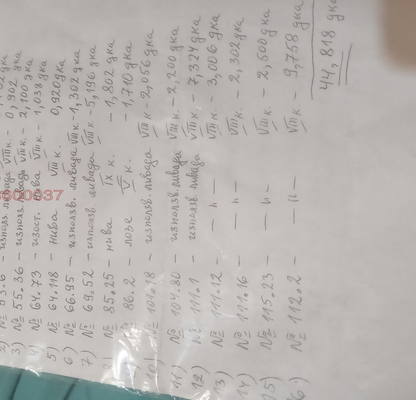 3) № 55.36 - използ. ливада VIII к. - 2,100 дка
4) № 64.73 - изост. нива VIII к. - 1,038 дка
5) № 64.118 - нива VII к. 0,920 дка
6) № 66.95 - използв. ливада VIII к. - 1,302 дка
7) № 69.52 - използв. ливада VIII к. - 5,196 дка
№ 85.25 - нива IX к. - 1,802 дка
№ 86.2 - лозе V к. - 1,710 дка
10) № 101.18 - използв. ливада VIII к. - 2,056 дка
11) № 104.80 - използв. ливада VIII к. - 2,200 дка
12) № 111.1 - използв. ливада VIII к. - 7,324 дка
13) № 111.12 - -"- VIII к. - 3,006 дка
14) № 111.16 - -"- VIII к. - 2,302 дка
15) № 115.23 - -"- VIII к. - 2,500 дка
16) № 112.2 - -"- VIII к. - 9,758 дка
44,818 дка